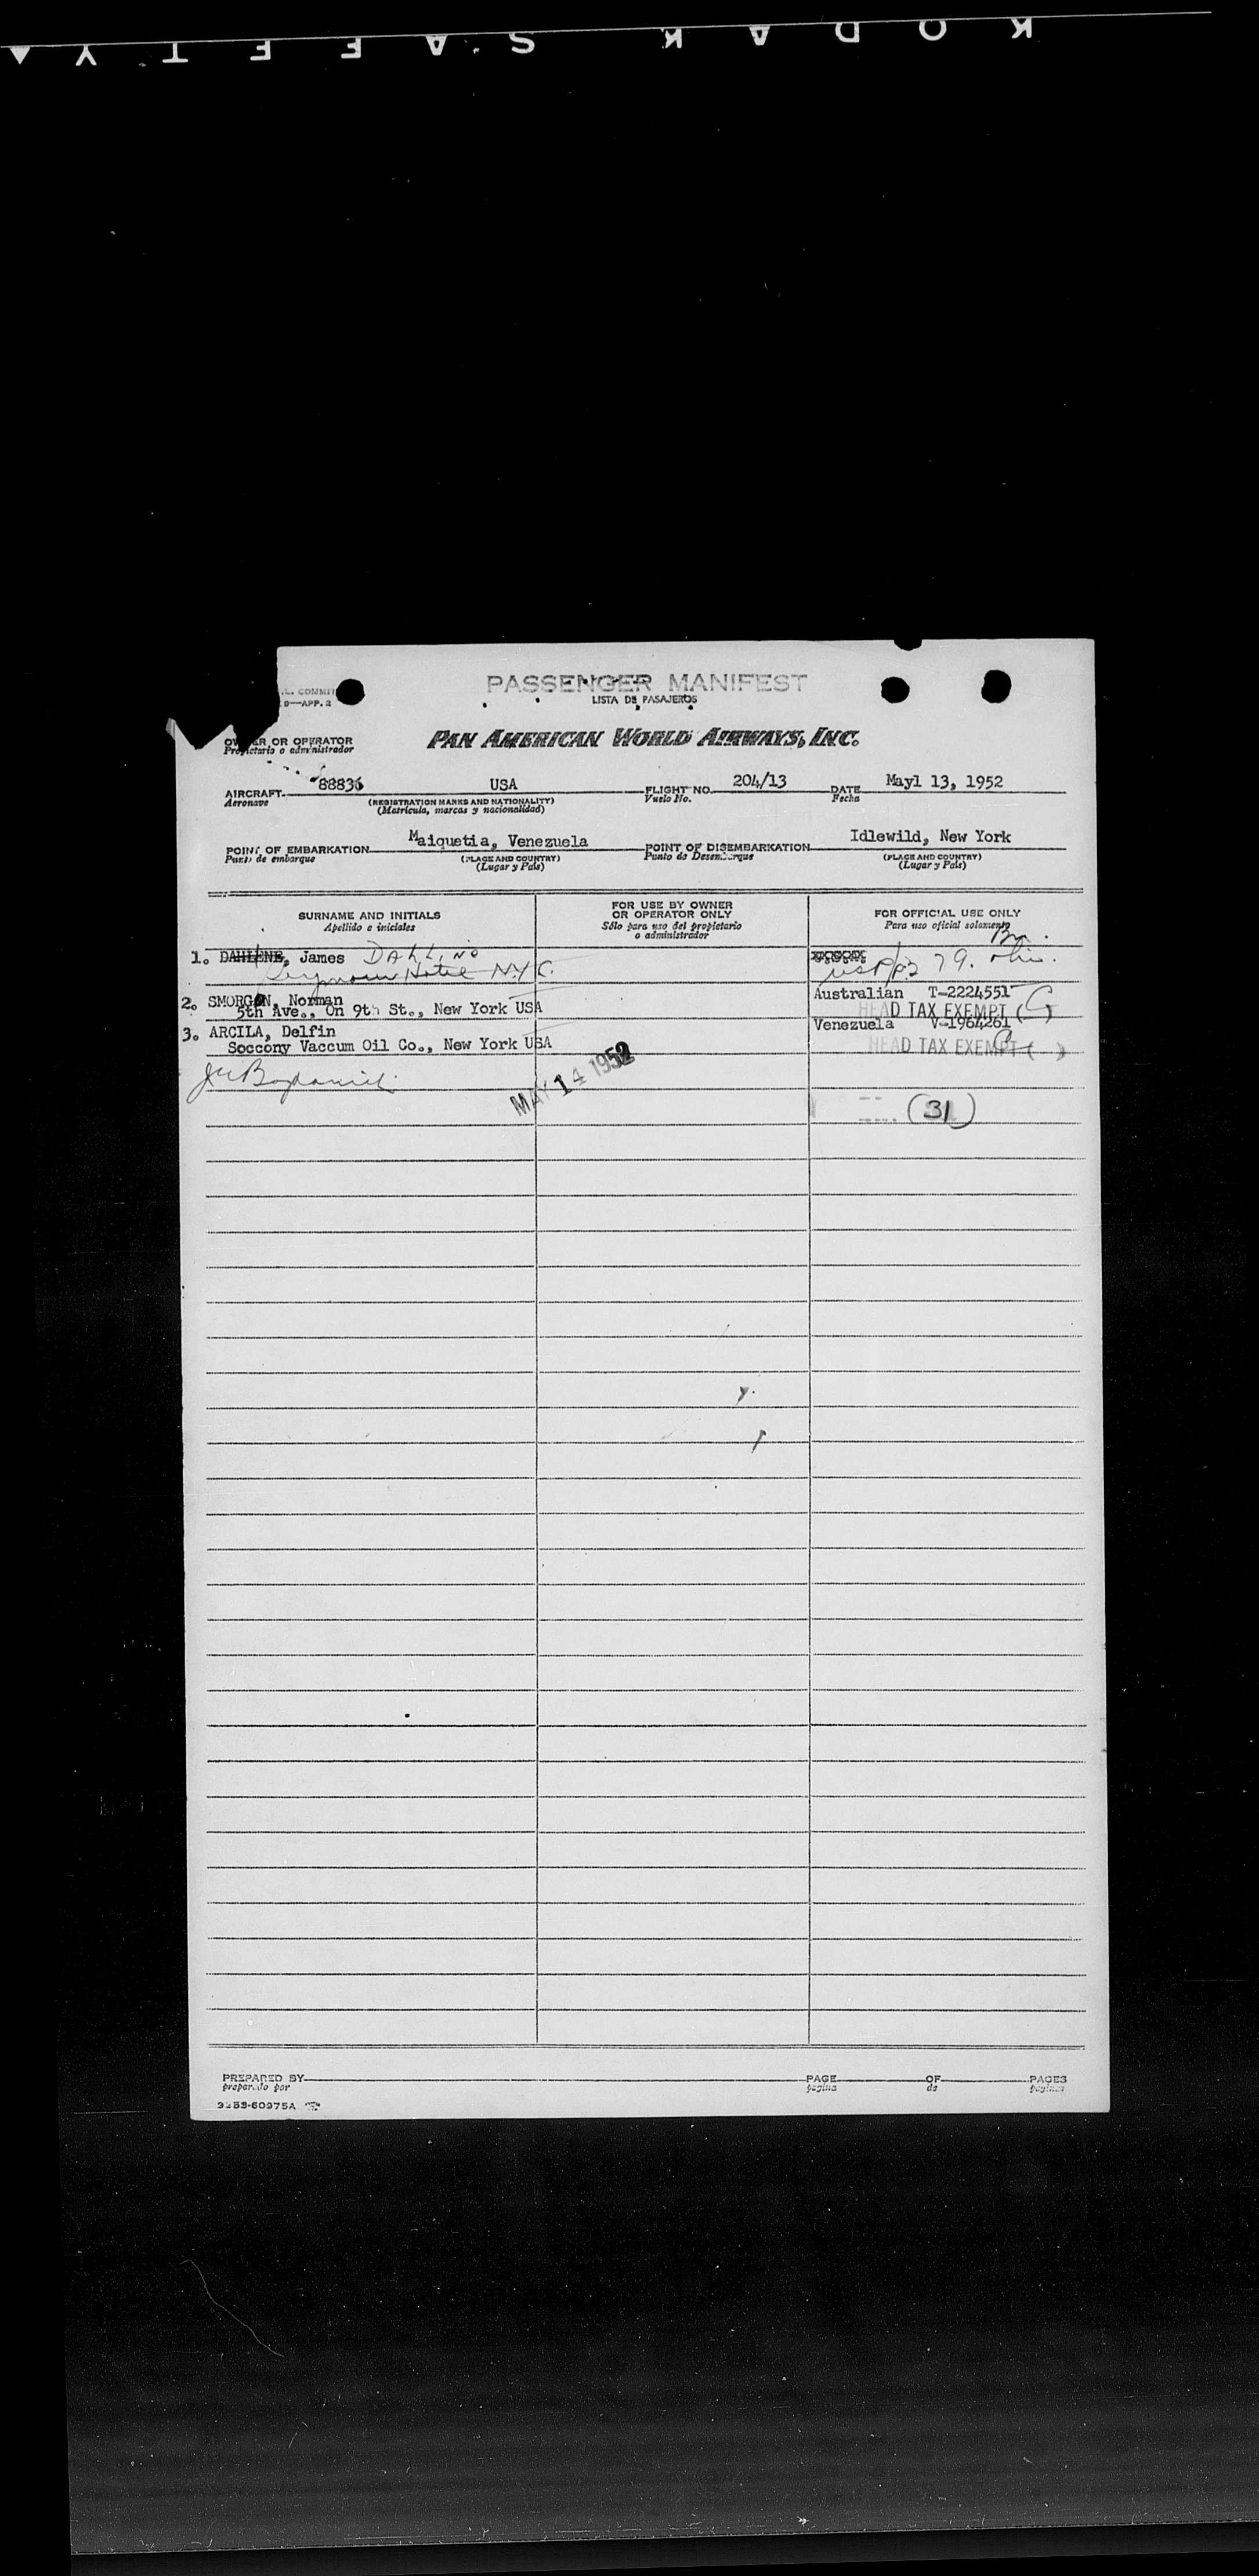 KODAK SAFETY
PASSENGER MANIFEST
LISTA DE PASAJEROS
.L. COMMIT
D—APP. 2
OWNER OR OPERATOR
Propietario o administrador
PAN AMERICAN WORLD AIRWAYS, INC.
AIRCRAFT 88836 USA FLIGHT NO. 204/13 DATE May1 13, 1952
Aeronave (REGISTRATION MARKS AND NATIONALITY) Vuelo No. Fecha
(Matricula, marcas y nacionalidad)
POINT OF EMBARKATION Maiquetia, Venezuela POINT OF DISEMBARKATION Idlewild, New York
Punto de embarque (PLACE AND COUNTRY) Punto de Desembarque (PLACE AND COUNTRY)
(Lugar y País) (Lugar y País)
SURNAME AND INITIALS FOR USE BY OWNER OR OPERATOR ONLY FOR OFFICIAL USE ONLY
Apellido e iniciales Sólo para uso del propietario o administrador Para uso oficial solamente
1. DAHLENE, James DAHLINO
Seymour Hotel N.Y.C.
2. SMORGON, Norman Australian T-2224551
5th Ave., On 9th St., New York USA HEAD TAX EXEMPT ( )
3. ARCILA, Delfin Venezuela V-1964261
Soccony Vaccum Oil Co., New York USA HEAD TAX EXEMPT ( )
MAY 14 1952
(31)
PREPARED BY PAGE OF PAGES
preparado por página de páginas
9283-60975A